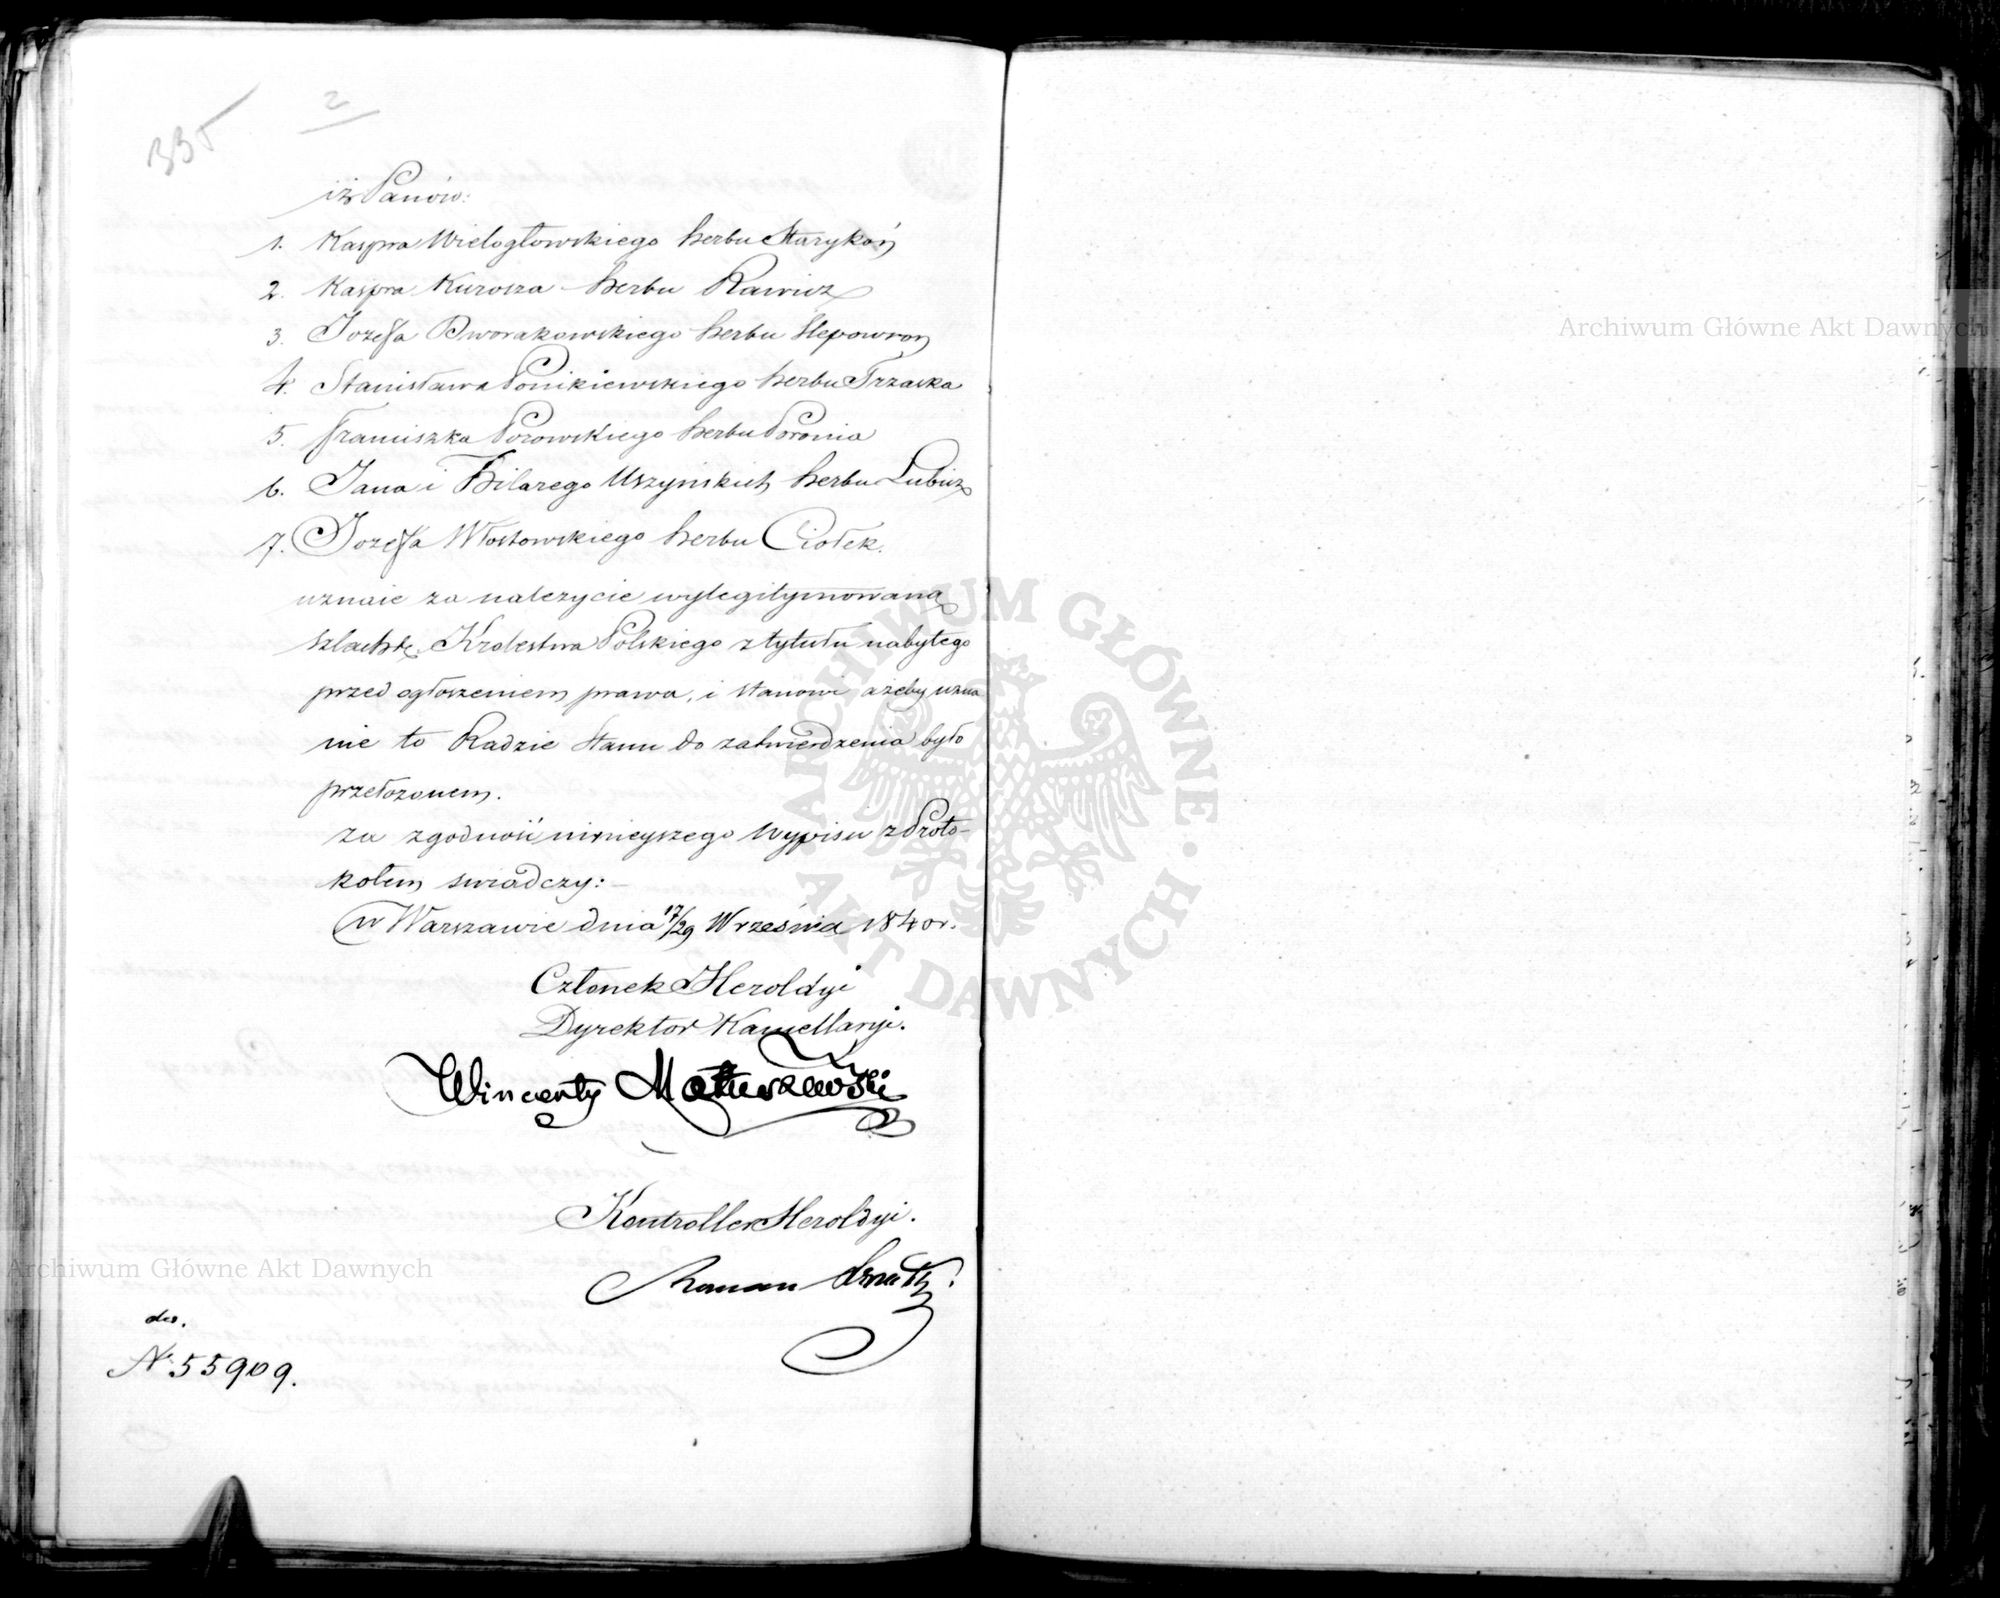 335
2
iż Panów:
1. Kaspra Wielogłowskiego herbu Starykoń
2. Kaspra Kurosza herbu Rawicz
3. Jozefa Dworakowskiego herbu Slepowron
4. Stanisława Ponikiewskiego herbu Trzaska
5. Franciszka Porowskiego herbu Poronia
6. Jana i Hilarego Uszyńskich herbu Lubicz
7. Jozefa Włostowskiego herbu Ciołek.
uznaie za należycie wylegitymowaną
szlachtę Krolestwa Polskiego z tytułu nabytego
przed ogłoszeniem prawa, i stanowi ażeby uzna
nie to Radzie Stanu do zatwierdzenia było
przełożonem.
za zgodność ninieyszego wypisu z Proto-
kołem swiadczy:-
w Warszawie dnia 17/29 Września 1840 r.
Członek Heroldyi
Dyrektor Kancellaryi.
Wincenty Matuszewski
Kontroller Heroldyi.
Roman
No 55909.
Archiwum Główne Akt Dawnych
Archiwum Główne Akt Dawnych
ARCHIWUM GŁÓWNE · AKT DAWNYCH ·